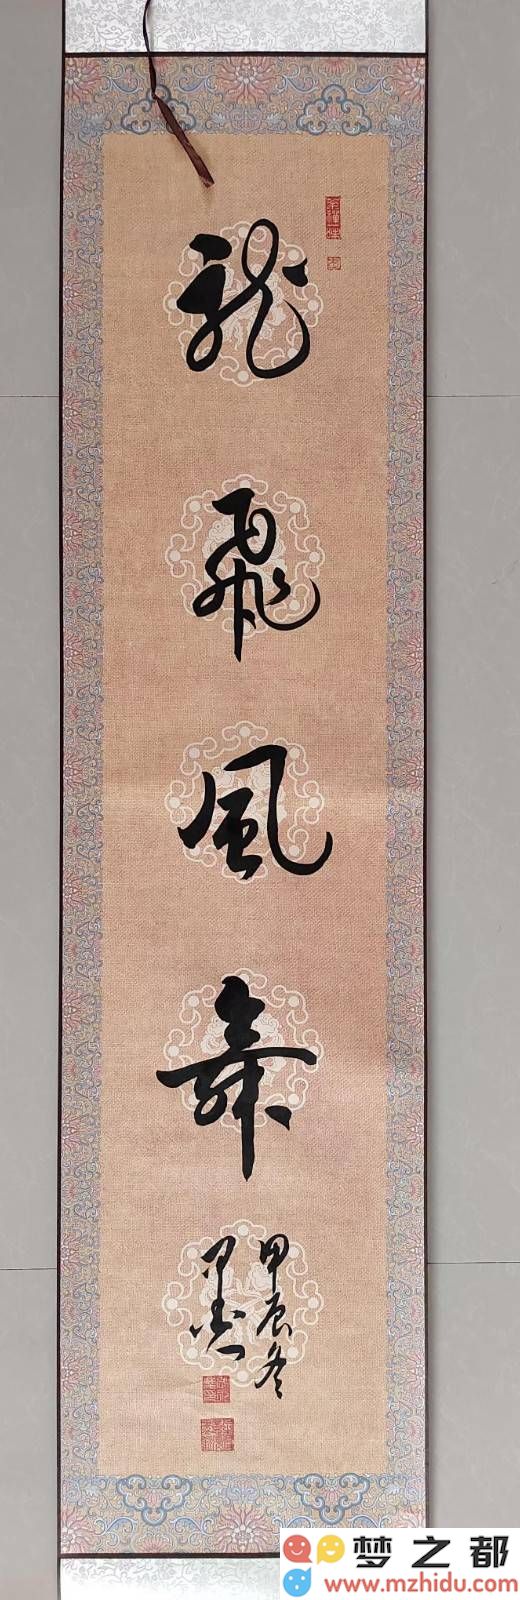 龍飛鳳舞
甲辰冬
梦之都
www.mzhidu.com